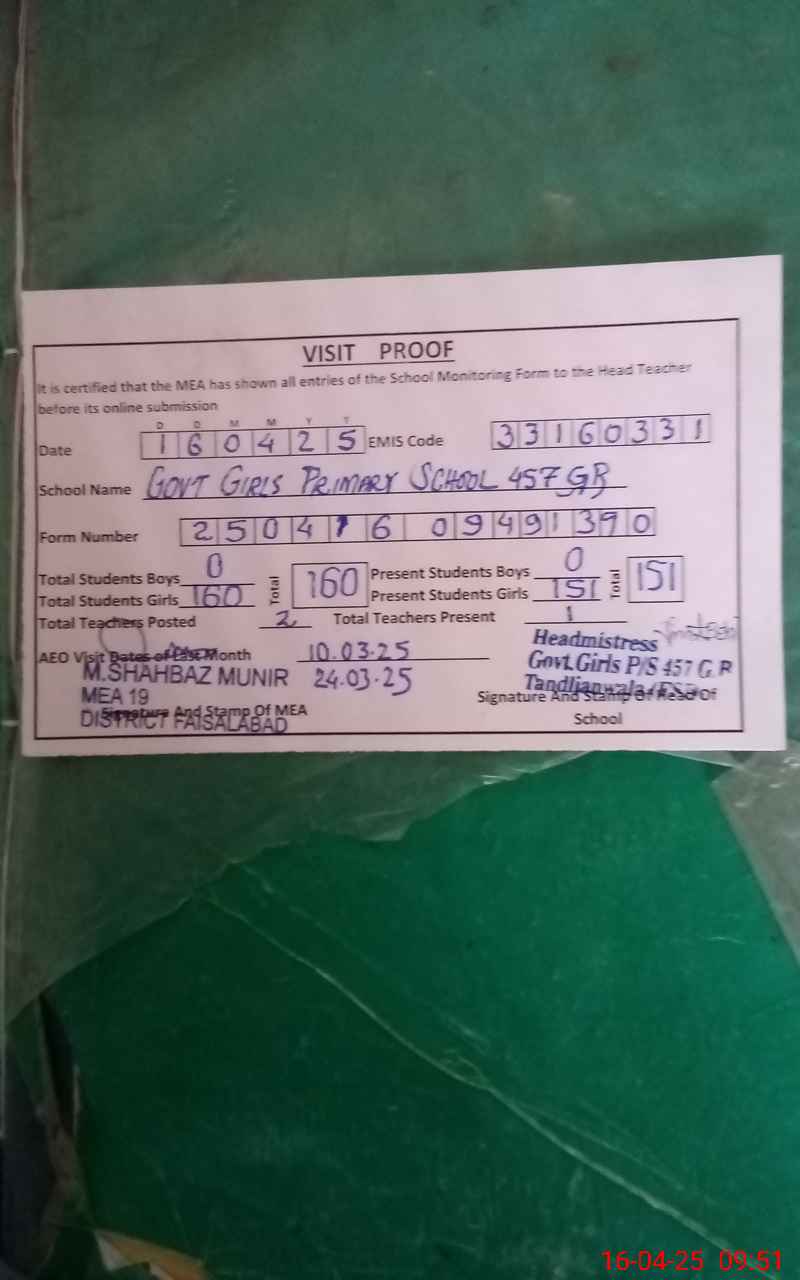 VISIT PROOF
It is certified that the MEA has shown all entries of the School Monitoring Form to the Head Teacher
before its online submission
D D M M Y Y
Date 1 6 0 4 2 5 EMIS Code 3 3 1 6 0 3 3 1
School Name GOVT GIRLS PRIMARY SCHOOL 457 GB
Form Number 2 5 0 4 1 6 0 9 4 9 1 3 9 0
Total Students Boys 0 Total 160 Present Students Boys 0 Total 151
Total Students Girls 160 Present Students Girls 151
Total Teachers Posted 2 Total Teachers Present 1
AEO Visit Dates of Last Month 10.03.25
24.03.25
M.SHAHBAZ MUNIR
MEA 19
DISTRICT FAISALABAD
Signature And Stamp Of MEA
Headmistress
Govt. Girls P/S 457 G.B
Tandlianwala (FSD)
Signature And Stamp Of Head Of
School
16-04-25 09:51